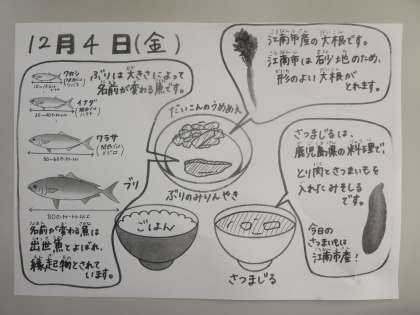 12月4日(金)
ぶりは大きさによって
名前が変わる魚です。
ワカシ
イナダ
ワラサ
ブリ
名前が変わる魚は
出世魚とよばれ、
縁起物とされて
います。
だいこんのうめあん
ぶりのみりんやき
ごはん
さつまじる
江南市産の大根です。
江南市は砂地のため、
形のよい大根が
とれます。
さつまじるは、
鹿児島県の料理で、
とり肉とさつまいもを
入れたみそしる
です。
今日の
さつまいもは
江南市産!